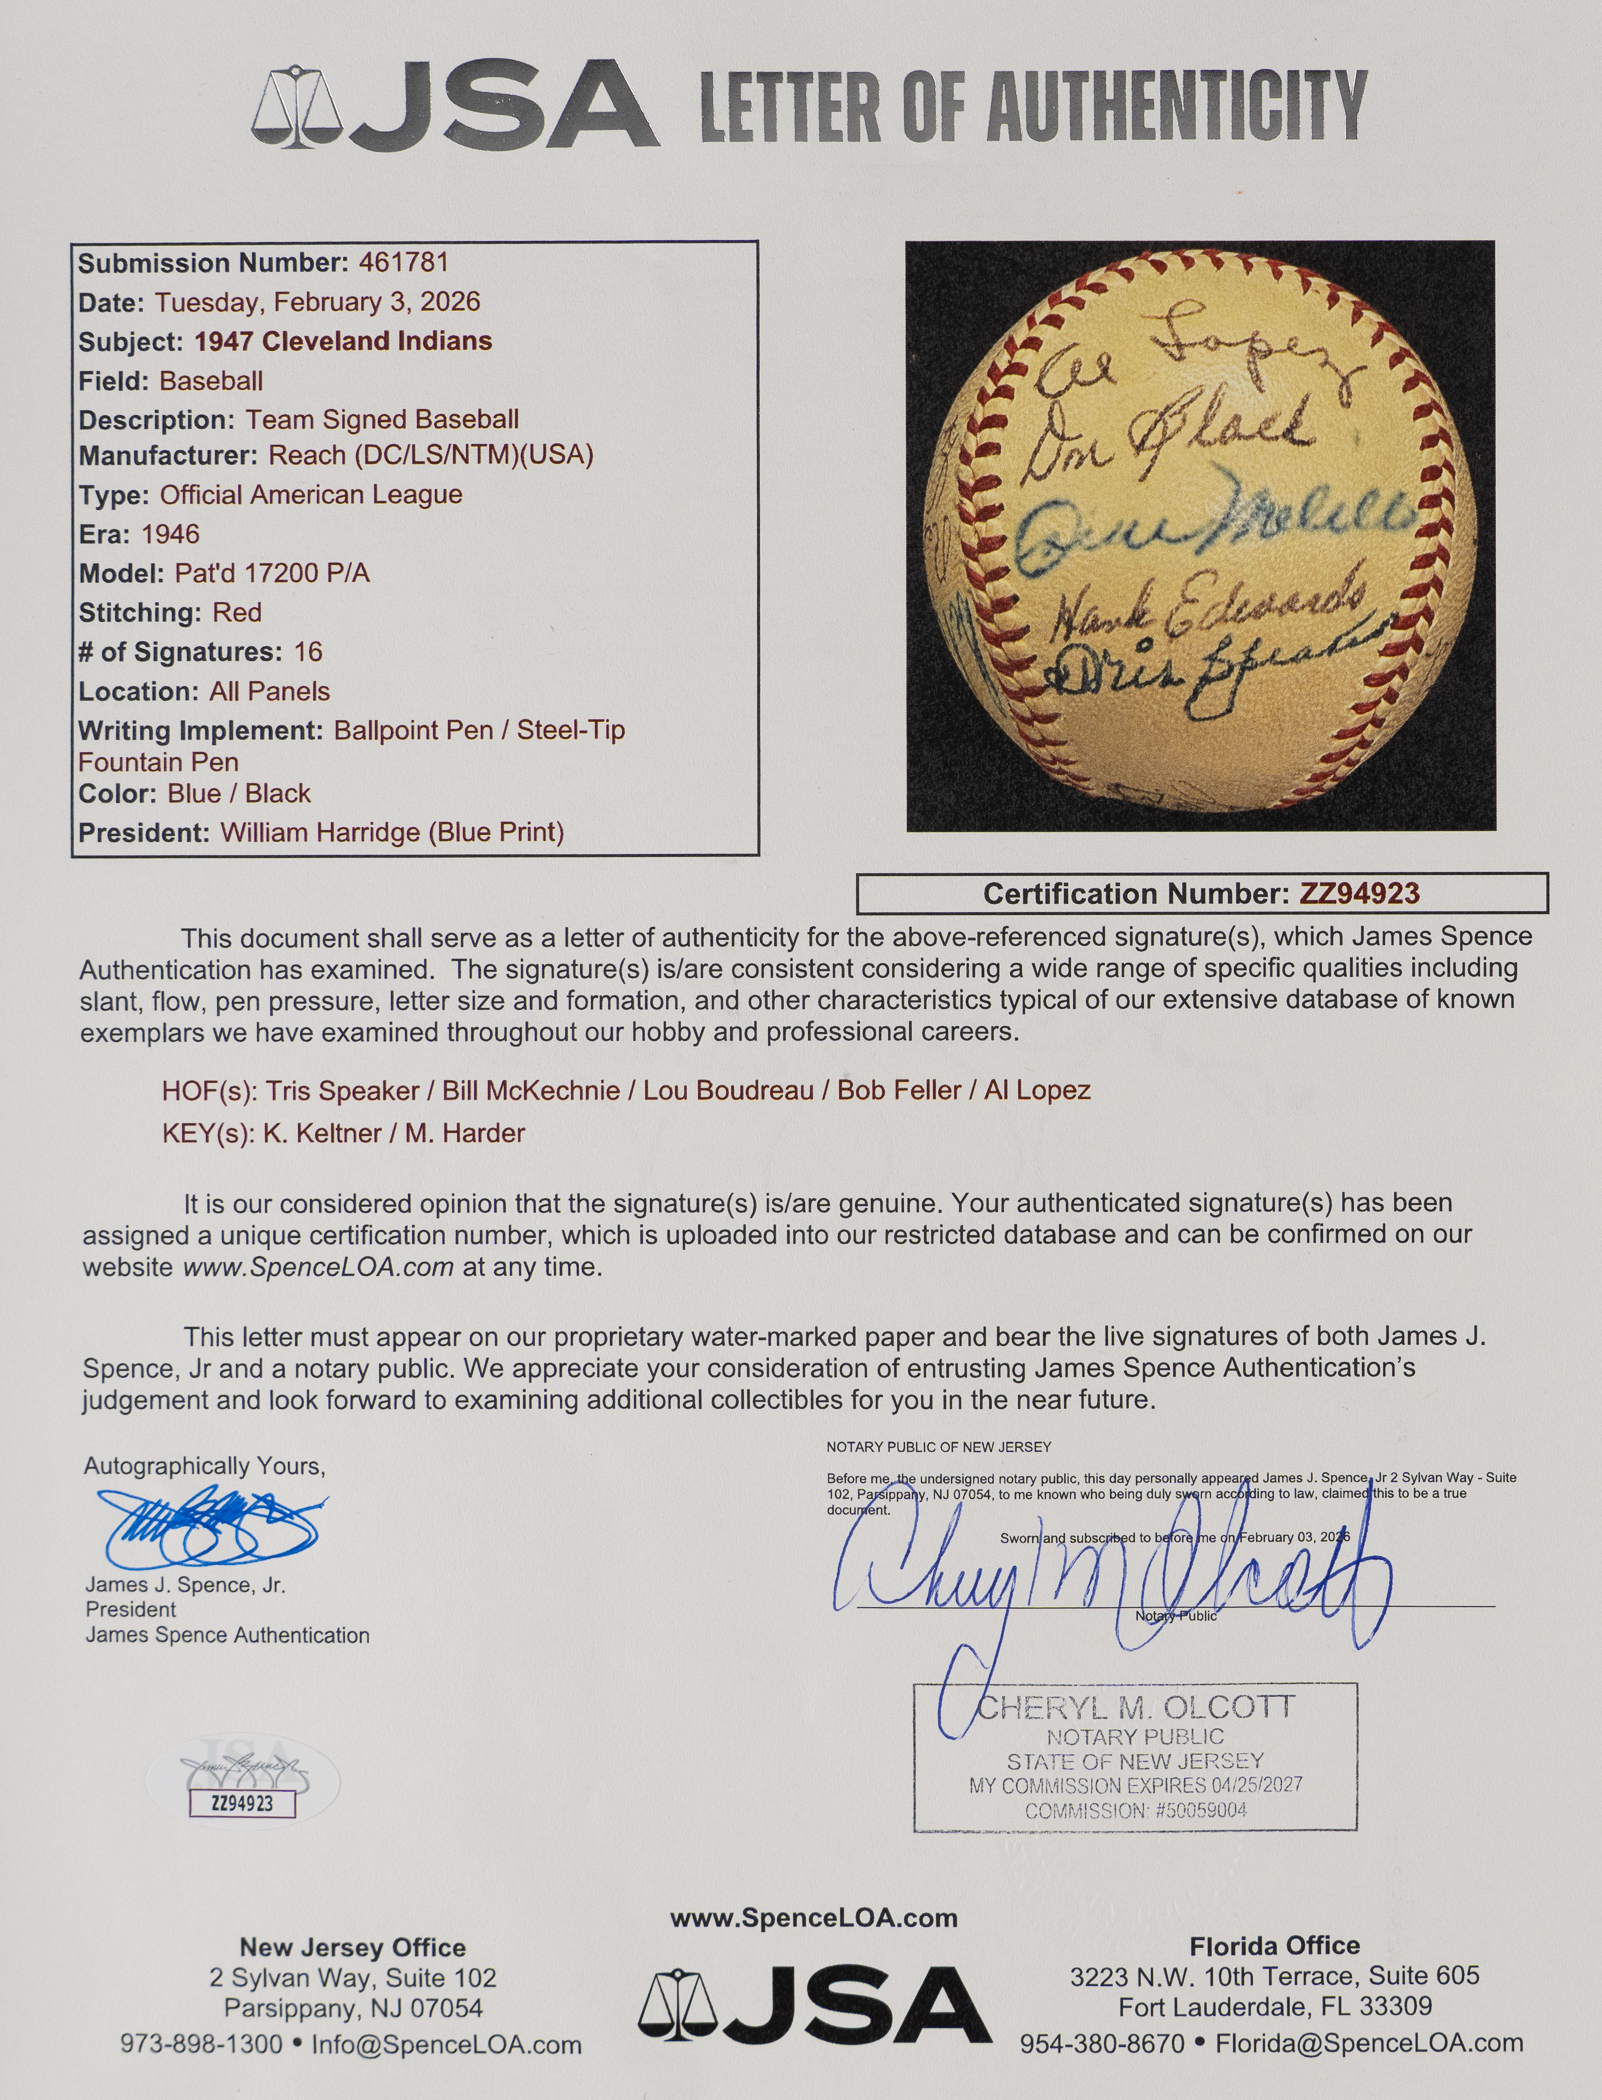 JSA LETTER OF AUTHENTICITY
Submission Number: 461781
Date: Tuesday, February 3, 2026
Subject: 1947 Cleveland Indians
Field: Baseball
Description: Team Signed Baseball
Manufacturer: Reach (DC/LS/NTM)(USA)
Type: Official American League
Era: 1946
Model: Pat'd 17200 P/A
Stitching: Red
# of Signatures: 16
Location: All Panels
Writing Implement: Ballpoint Pen / Steel-Tip
Fountain Pen
Color: Blue / Black
President: William Harridge (Blue Print)
Al Lopez
Don Black
Melillo
Hank Edwards
Tris Speaker
Certification Number: ZZ94923
This document shall serve as a letter of authenticity for the above-referenced signature(s), which James Spence
Authentication has examined. The signature(s) is/are consistent considering a wide range of specific qualities including
slant, flow, pen pressure, letter size and formation, and other characteristics typical of our extensive database of known
exemplars we have examined throughout our hobby and professional careers.
HOF(s): Tris Speaker / Bill McKechnie / Lou Boudreau / Bob Feller / Al Lopez
KEY(s): K. Keltner / M. Harder
It is our considered opinion that the signature(s) is/are genuine. Your authenticated signature(s) has been
assigned a unique certification number, which is uploaded into our restricted database and can be confirmed on our
website www.SpenceLOA.com at any time.
This letter must appear on our proprietary water-marked paper and bear the live signatures of both James J.
Spence, Jr and a notary public. We appreciate your consideration of entrusting James Spence Authentication’s
judgement and look forward to examining additional collectibles for you in the near future.
Autographically Yours,
James J. Spence, Jr.
President
James Spence Authentication
NOTARY PUBLIC OF NEW JERSEY
Before me, the undersigned notary public, this day personally appeared James J. Spence, Jr 2 Sylvan Way - Suite
102, Parsippany, NJ 07054, to me known who being duly sworn according to law, claimed this to be a true
document.
Sworn and subscribed to before me on February 03, 2026
Cheryl M Olcott
Notary Public
CHERYL M. OLCOTT
NOTARY PUBLIC
STATE OF NEW JERSEY
MY COMMISSION EXPIRES 04/25/2027
COMMISSION: #50059004
JSA
ZZ94923
www.SpenceLOA.com
New Jersey Office
2 Sylvan Way, Suite 102
Parsippany, NJ 07054
973-898-1300 • Info@SpenceLOA.com
JSA
Florida Office
3223 N.W. 10th Terrace, Suite 605
Fort Lauderdale, FL 33309
954-380-8670 • Florida@SpenceLOA.com